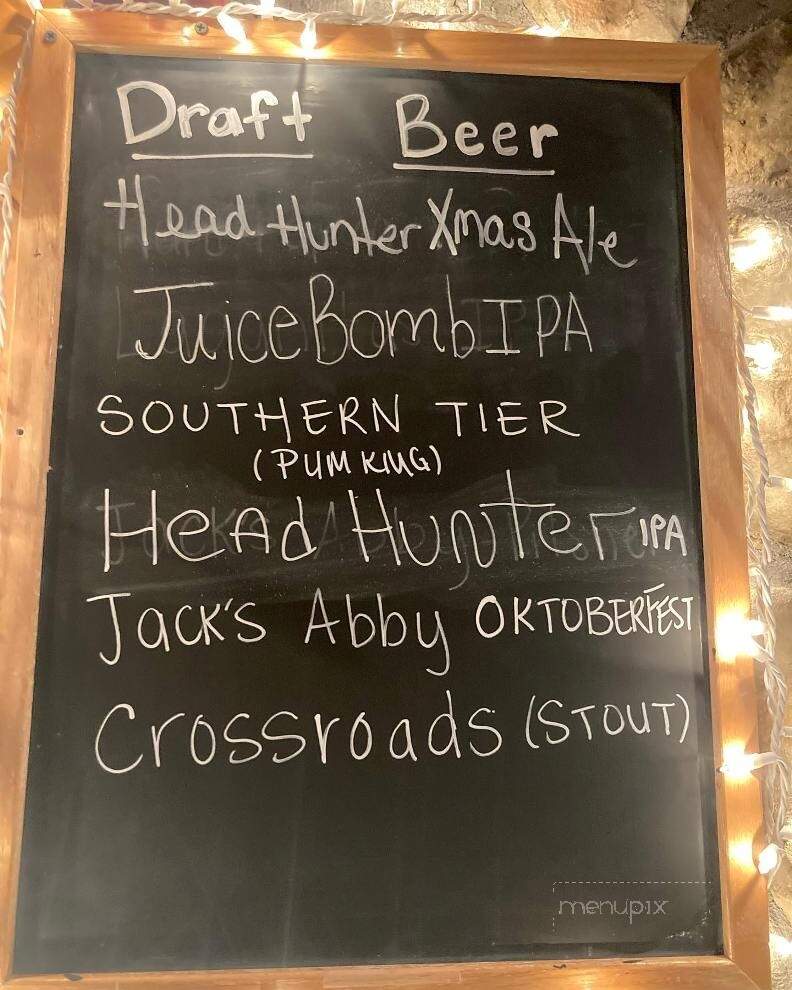 Draft Beer
Head Hunter Xmas Ale
Juice Bomb IPA
SOUTHERN TIER
(PUMKING)
Head Hunter IPA
Jack's Abby OKTOBERFEST
Crossroads (STOUT)
menupix